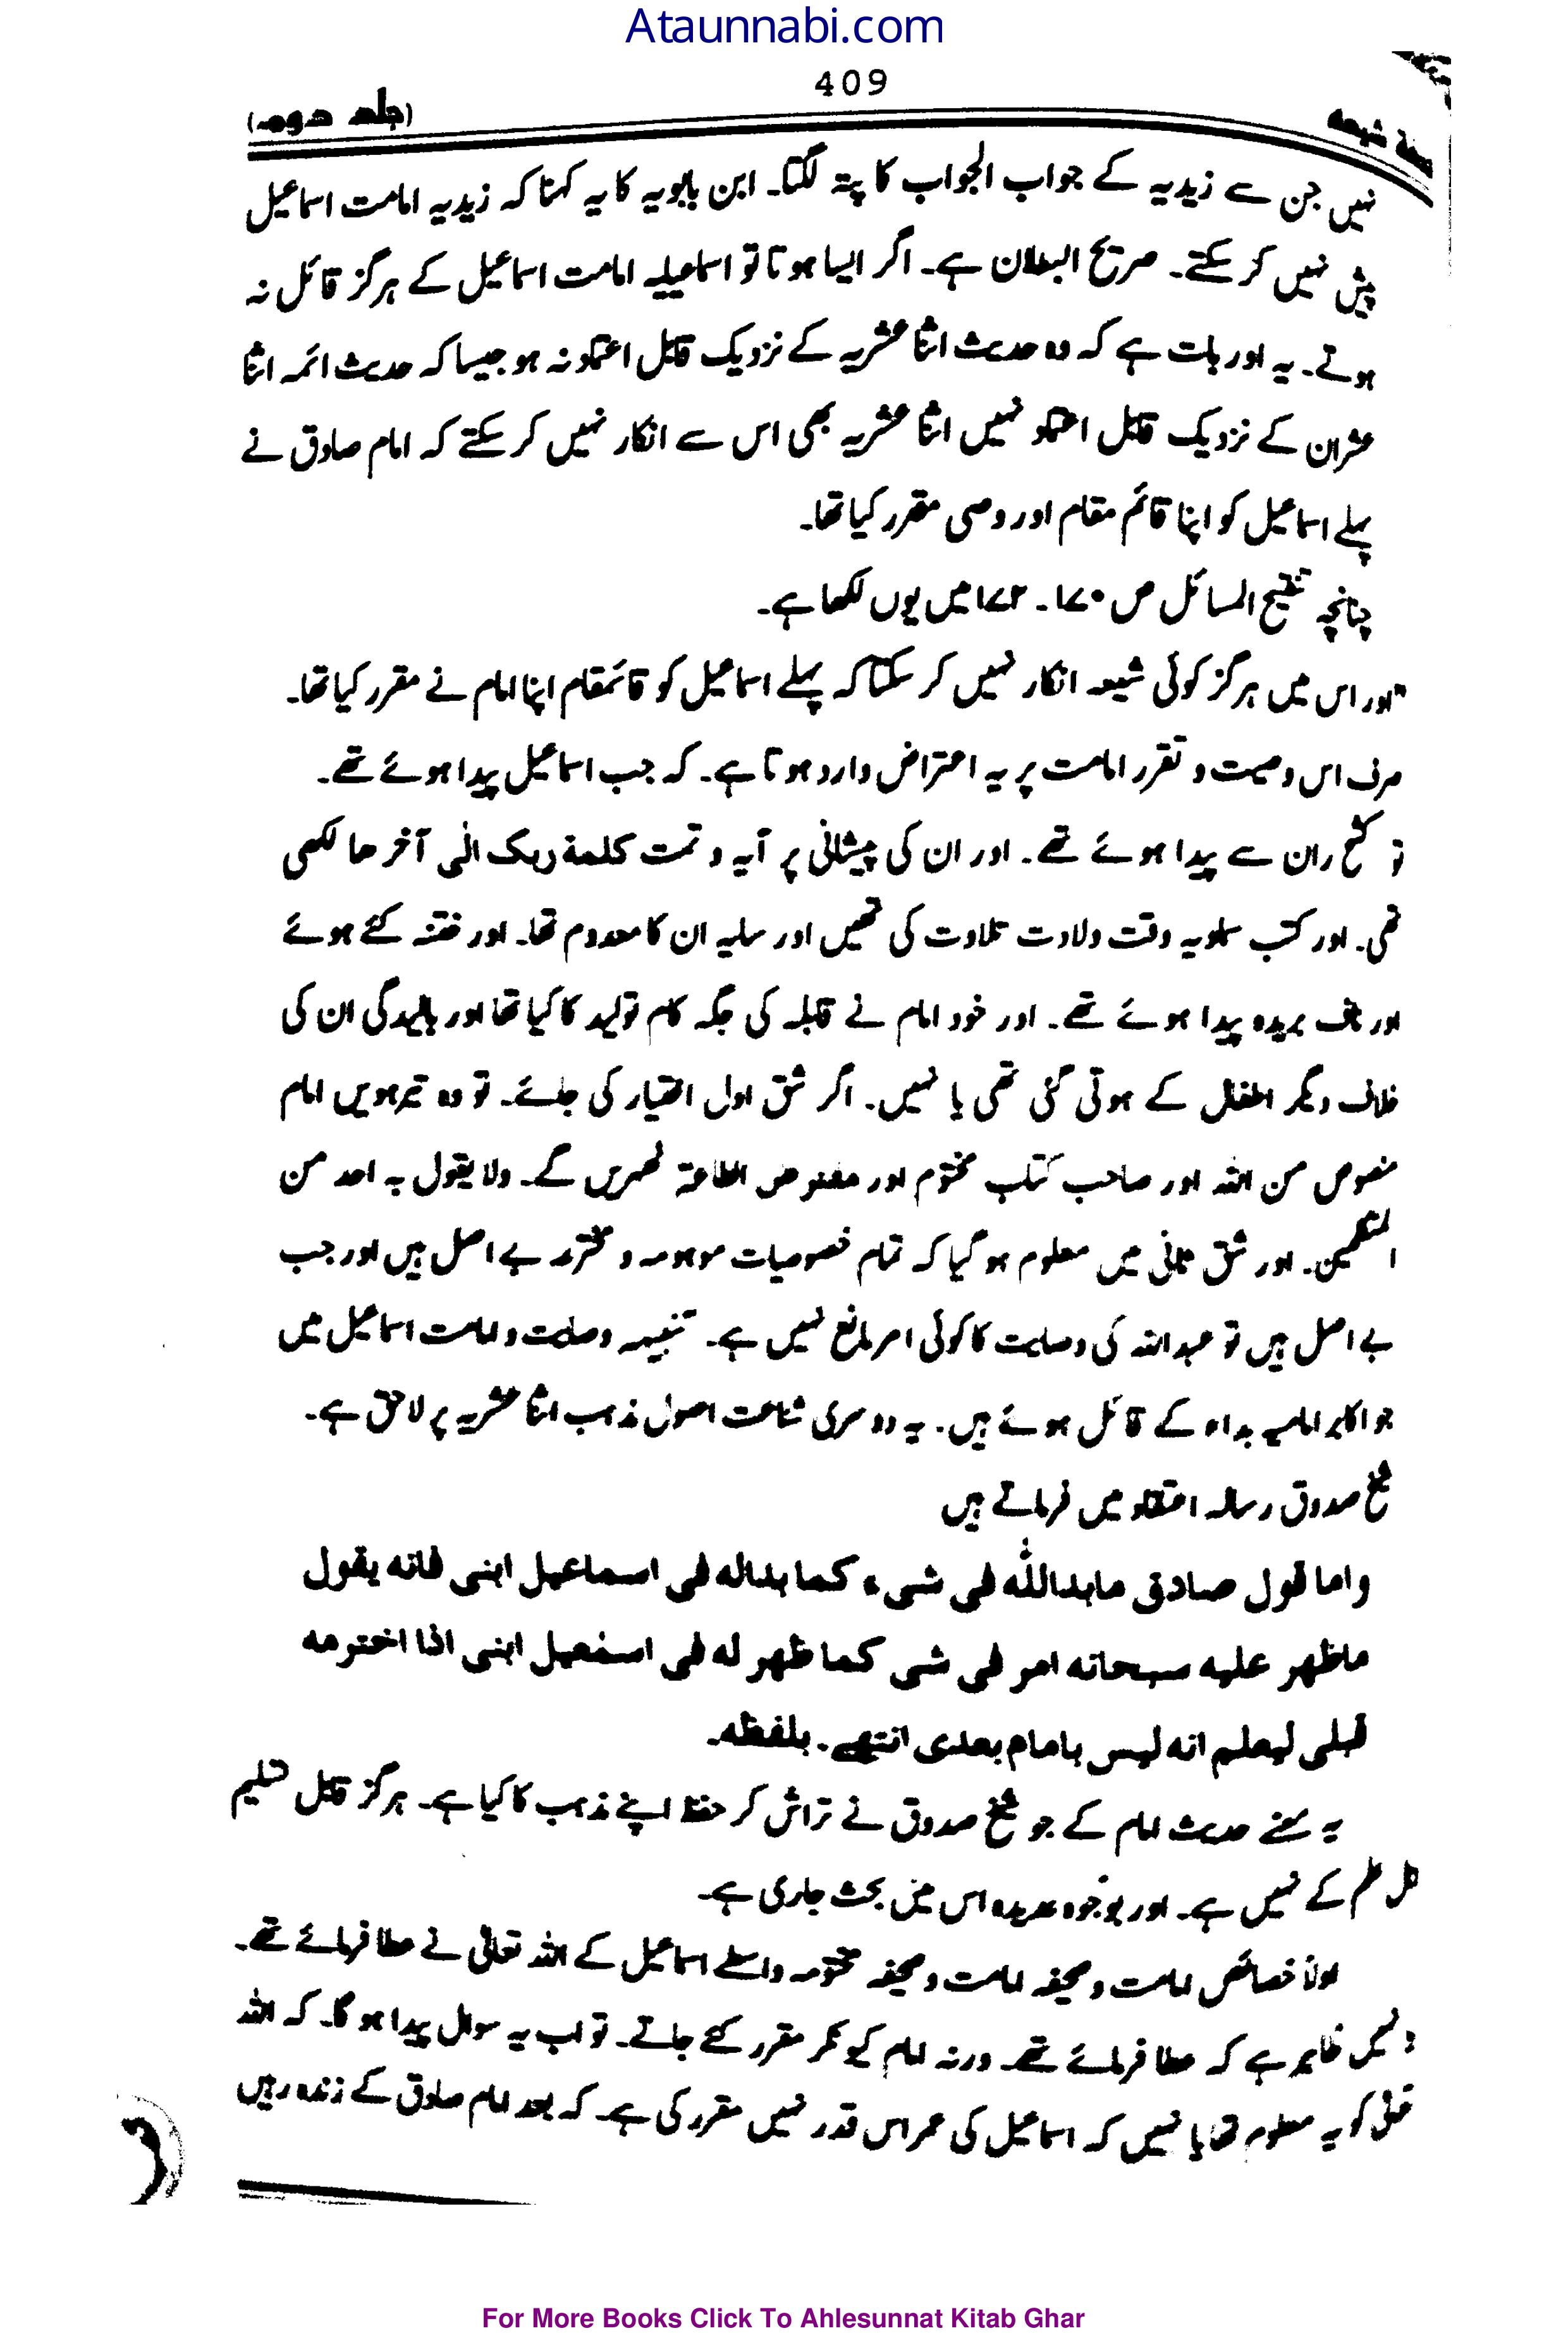 Ataunnabi.com
409
(جلد دوم)
نہیں جن سے زیدیہ کے جواب الجواب کا پتہ لگتا۔ ابن بابویہ کا یہ کہنا کہ زیدیہ امامت اسماعیل
پیش نہیں کر سکتے۔ صریح البطلان ہے۔ اگر ایسا ہوتا تو اسماعیلیہ امامت اسماعیل کے ہرگز قائل نہ
ہوتے۔ یہ اور بات ہے کہ وہ حدیث اثنا عشریہ کے نزدیک قابل اعتماد نہ ہو جیسا کہ حدیث ائمہ اثنا
عشر ان کے نزدیک قابل اعتماد نہیں اثنا عشریہ بھی اس سے انکار نہیں کر سکتے کہ امام صادق نے
پہلے اسماعیل کو اپنا قائم مقام اور وصی مقرر کیا تھا۔
چنانچہ تنقیح المسائل ص ۱۷۰۔ ۱۷۲ میں یوں لکھا ہے۔
"اور اس میں ہرگز کوئی شیعہ انکار نہیں کر سکتا کہ پہلے اسماعیل کو قائمقام اپنا امام نے مقرر کیا تھا۔
صرف اس وصیت و تقرر امامت پر یہ اعتراض وارد ہوتا ہے۔ کہ جب اسماعیل پیدا ہوئے تھے۔
تو کشح ران سے پیدا ہوئے تھے۔ اور ان کی پیشانی پر آیہ و تمت کلمة ربک الٰی آخرھا لکھی
تھی۔ اور کتب سماویہ وقت ولادت تلاوت کی تھیں اور سایہ ان کا معدوم تھا۔ اور ختنہ کئے ہوئے
اور ناف بریدہ پیدا ہوئے تھے۔ اور خود امام نے قابلہ کی جگہ کام تولید کا کیا تھا اور بالیدگی ان کی
خلاف دیگر اطفال کے ہوتی گئی تھی یا نہیں۔ اگر شق اول اختیار کی جائے۔ تو وہ تیرہویں امام
منصوص من اللہ اور صاحب کتاب مختوم اور مفترض الطاعۃ ٹھہریں گے۔ ولا یقول بہ احد من
المتکلمین۔ اور شق ثانی میں معلوم ہو گیا کہ تمام خصوصیات موہومہ و مخترعہ بے اصل ہیں اور جب
بے اصل ہیں تو عبداللہ کی وصایت کا کوئی امر مانع نہیں ہے۔ تنبیہہ وصایت و امامت اسماعیل میں
جو اکابر امامیہ بداء کے قائل ہوئے ہیں۔ یہ دوسری شناعت اصول مذہب اثنا عشریہ پر لاحق ہے۔
شیخ صدوق رسالہ اعتقاد میں فرماتے ہیں
واما قول صادق مابدا للّٰہ فی شیء کما بدالہ فی اسماعیل ابنی فانہ یقول
ماظہر علیہ سبحانہ امر فی شی کما ظہر لہ فی اسمٰعیل ابنی اذا اخترمہ
قبلی لیعلم انہ لیس بامام بعدی انتہے۔ بلفظہ۔
یہ معنے حدیث امام کے جو شیخ صدوق نے تراش کر حفظ اپنے مذہب کا کیا ہے۔ ہرگز قابل تسلیم
اہل علم کے نہیں ہے۔ اور بوجوہ عدیدہ اس میں بحث جاری ہے۔
اولاً خصائص امامت و صحیفہ امامت و صحیفہ مختومہ واسطے اسماعیل کے اللہ تعالیٰ نے عطا فرمائے تھے۔
یا نہیں ظاہر ہے کہ عطا فرمائے تھے۔ ورنہ امام کیونکر مقرر کئے جاتے۔ تو اب یہ سوال پیدا ہو گا۔ کہ اللہ
تعالیٰ کو یہ معلوم تھا یا نہیں کہ اسماعیل کی عمر اس قدر نہیں مقرر کی ہے۔ کہ بعد امام صادق کے زندہ رہیں
For More Books Click To Ahlesunnat Kitab Ghar